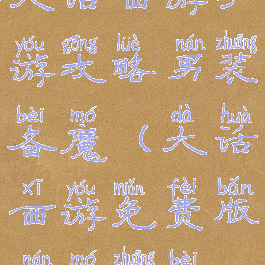 yóu gōng lüè nán zhuāng
游攻略男装
bèi mó dà huà
备魔（大话
xī yóu miǎn fèi bǎn
西游免费版
nán mó zhuāng bèi